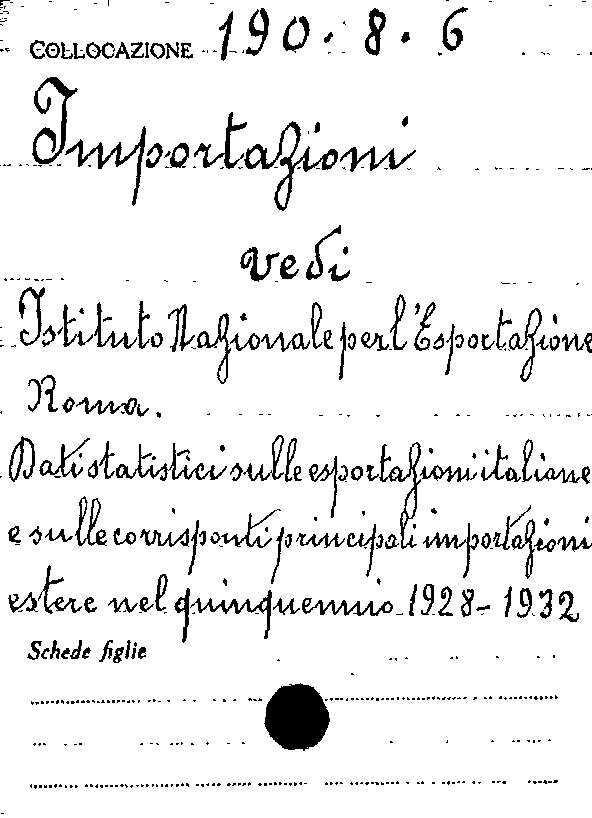 COLLOCAZIONE 190.8.6
Importazioni
vedi
Istituto Nazionale per l'Esportazione
Roma.
Dati statistici sulle esportazioni italiane
e sulle corrisponti principali importazioni
estere nel quinquennio 1928-1932
Schede figlie